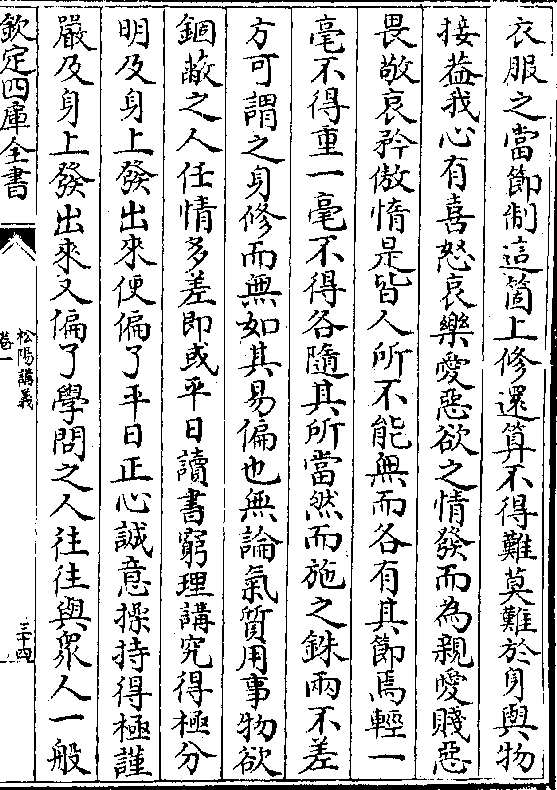 衣服之當節制這箇上修還算不得難莫難於身與物
接葢我心有喜怒哀樂愛惡欲之情發而為親愛賤惡
畏敬哀矜傲惰是皆人所不能無而各有其節焉輕一
毫不得重一毫不得各隨其所當然而施之銖兩不差
方可謂之身修而無如其易偏也無論氣質用事物欲
錮蔽之人任情多差即或平日讀書窮理講究得極分
明及身上發出來便偏了平日正心誠意操持得極謹
嚴及身上發出來又偏了學問之人往往與眾人一般
欽定四庫全書
松陽講義
卷一
三十四